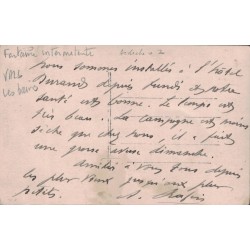 Fontaine intermittente
Vals
les bains
Ardèche
nous sommes installés à l'hôtel
Durand depuis lundi et notre
santé est bonne. le temps est
très beau. la campagne est moins
sèche que chez nous, il a fait
une grosse averse dimanche.
amitiés à vous tous depuis
les plus vieux jusqu'aux plus
petits.